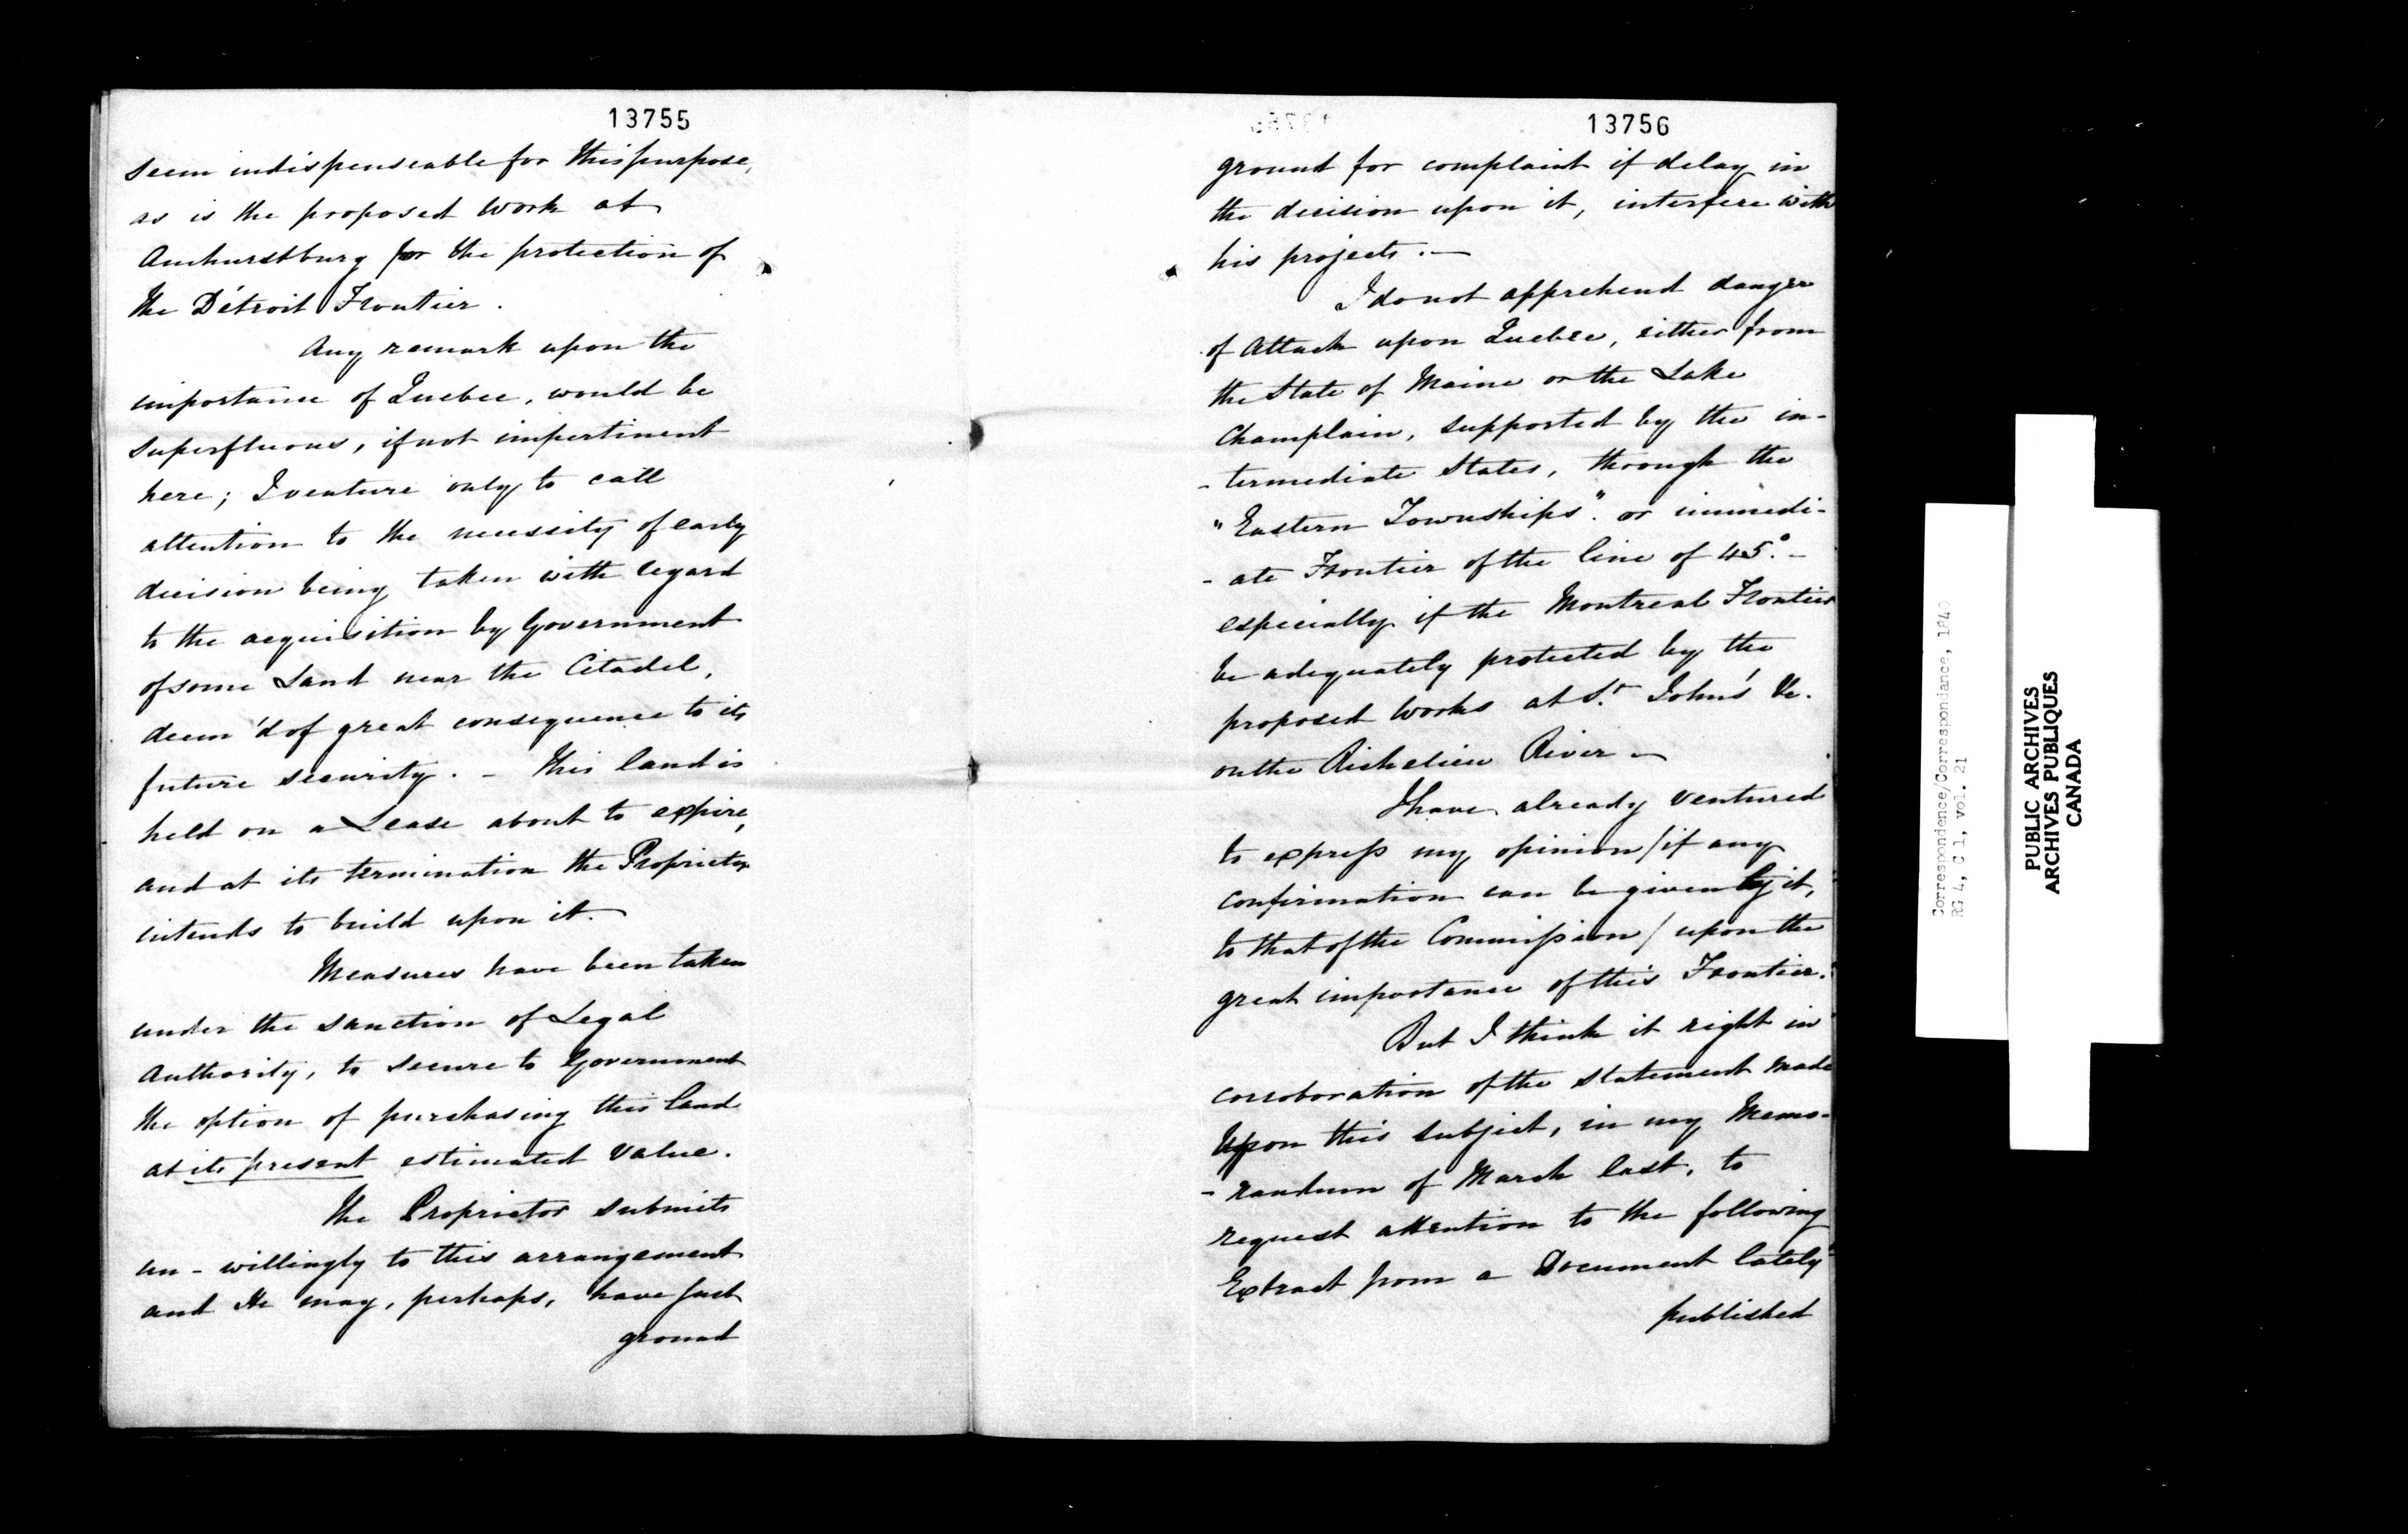 13755
seem indispenseable for this purpose,
as is the proposed work at
Amhurstburg for the protection of
the Détroit Frontier.
Any remark upon the
importance of Quebec, would be
superfluous, if not impertinent
here; I venture only to call
attention to the necessity of early
decision being taken with regard
to the acquisition by Government
of some Land near the Citadel,
deem'd of great consequence to its
future security. - This land is
held on a Lease about to expire,
and at its termination the Proprietor
intends to build upon it. -
Measures have been taken
under the sanction of Legal
Authority, to secure to Government
the option of purchasing this land
at its present estimated value.
The Proprietor submits
un-willingly to this arrangement
and He may, perhaps, have just
ground
13756
ground for complaint if delay in
the decision upon it, interfere with
his projects. -
I do not apprehend danger
of Attack upon Quebec, either from
the State of Maine or the Lake
Champlain, supported by the in-
-termediate States, through the
"Eastern Townships". or immedi-
-ate Frontier of the line of 45°. -
especially if the Montreal Frontier
be adequately protected by the
proposed Works at St. John's &c.
on the Richelieu River -
I have already ventured
to express my opinion / if any
confirmation can be given by it,
to that of the Commission / upon the
great importance of this Frontier.
But I think it right in
corroboration of the statement made
upon this subject, in my Memo-
-randum of March last, to
request attention to the following
Extract from a Document lately
published
Correspondence/Correspondance, 1840
RG 4, C 1, vol. 21
PUBLIC ARCHIVES
ARCHIVES PUBLIQUES
CANADA